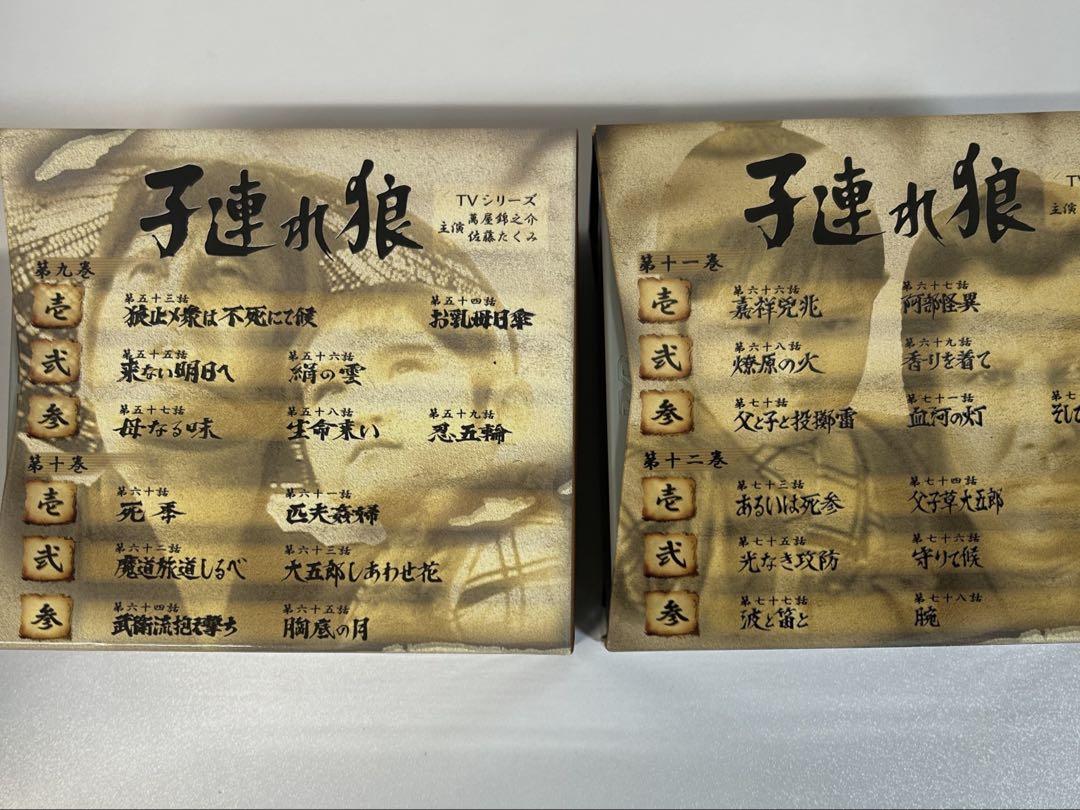 子連れ狼
TVシリーズ
主演
萬屋錦之介
佐藤たくみ
第九巻
壱
第五十三話
狼止メ衆は不死にて候
第五十四話
お乳母日傘
弐
第五十五話
来ない明日へ
第五十六話
絹の雲
参
第五十七話
母なる味
第五十八話
生命乗い
第五十九話
忍五輪
第十巻
壱
第六十話
死番
第六十一話
匹夫姦婦
弐
第六十二話
魔道旅道しるべ
第六十三話
大五郎しあわせ花
参
第六十四話
武衛流抱え撃ち
第六十五話
胸底の月
子連れ狼
TV
主演
第十一巻
壱
第六十六話
嘉祥兇兆
第六十七話
阿部怪異
弐
第六十八話
燎原の火
第六十九話
香りを着て
参
第七十話
父と子と投擲雷
第七十一話
血河の灯
第七
そして
第十二巻
壱
第七十三話
あるいは死参
第七十四話
父子草大五郎
弐
第七十五話
光なき攻防
第七十六話
守りて候
参
第七十七話
波と笛と
第七十八話
腕